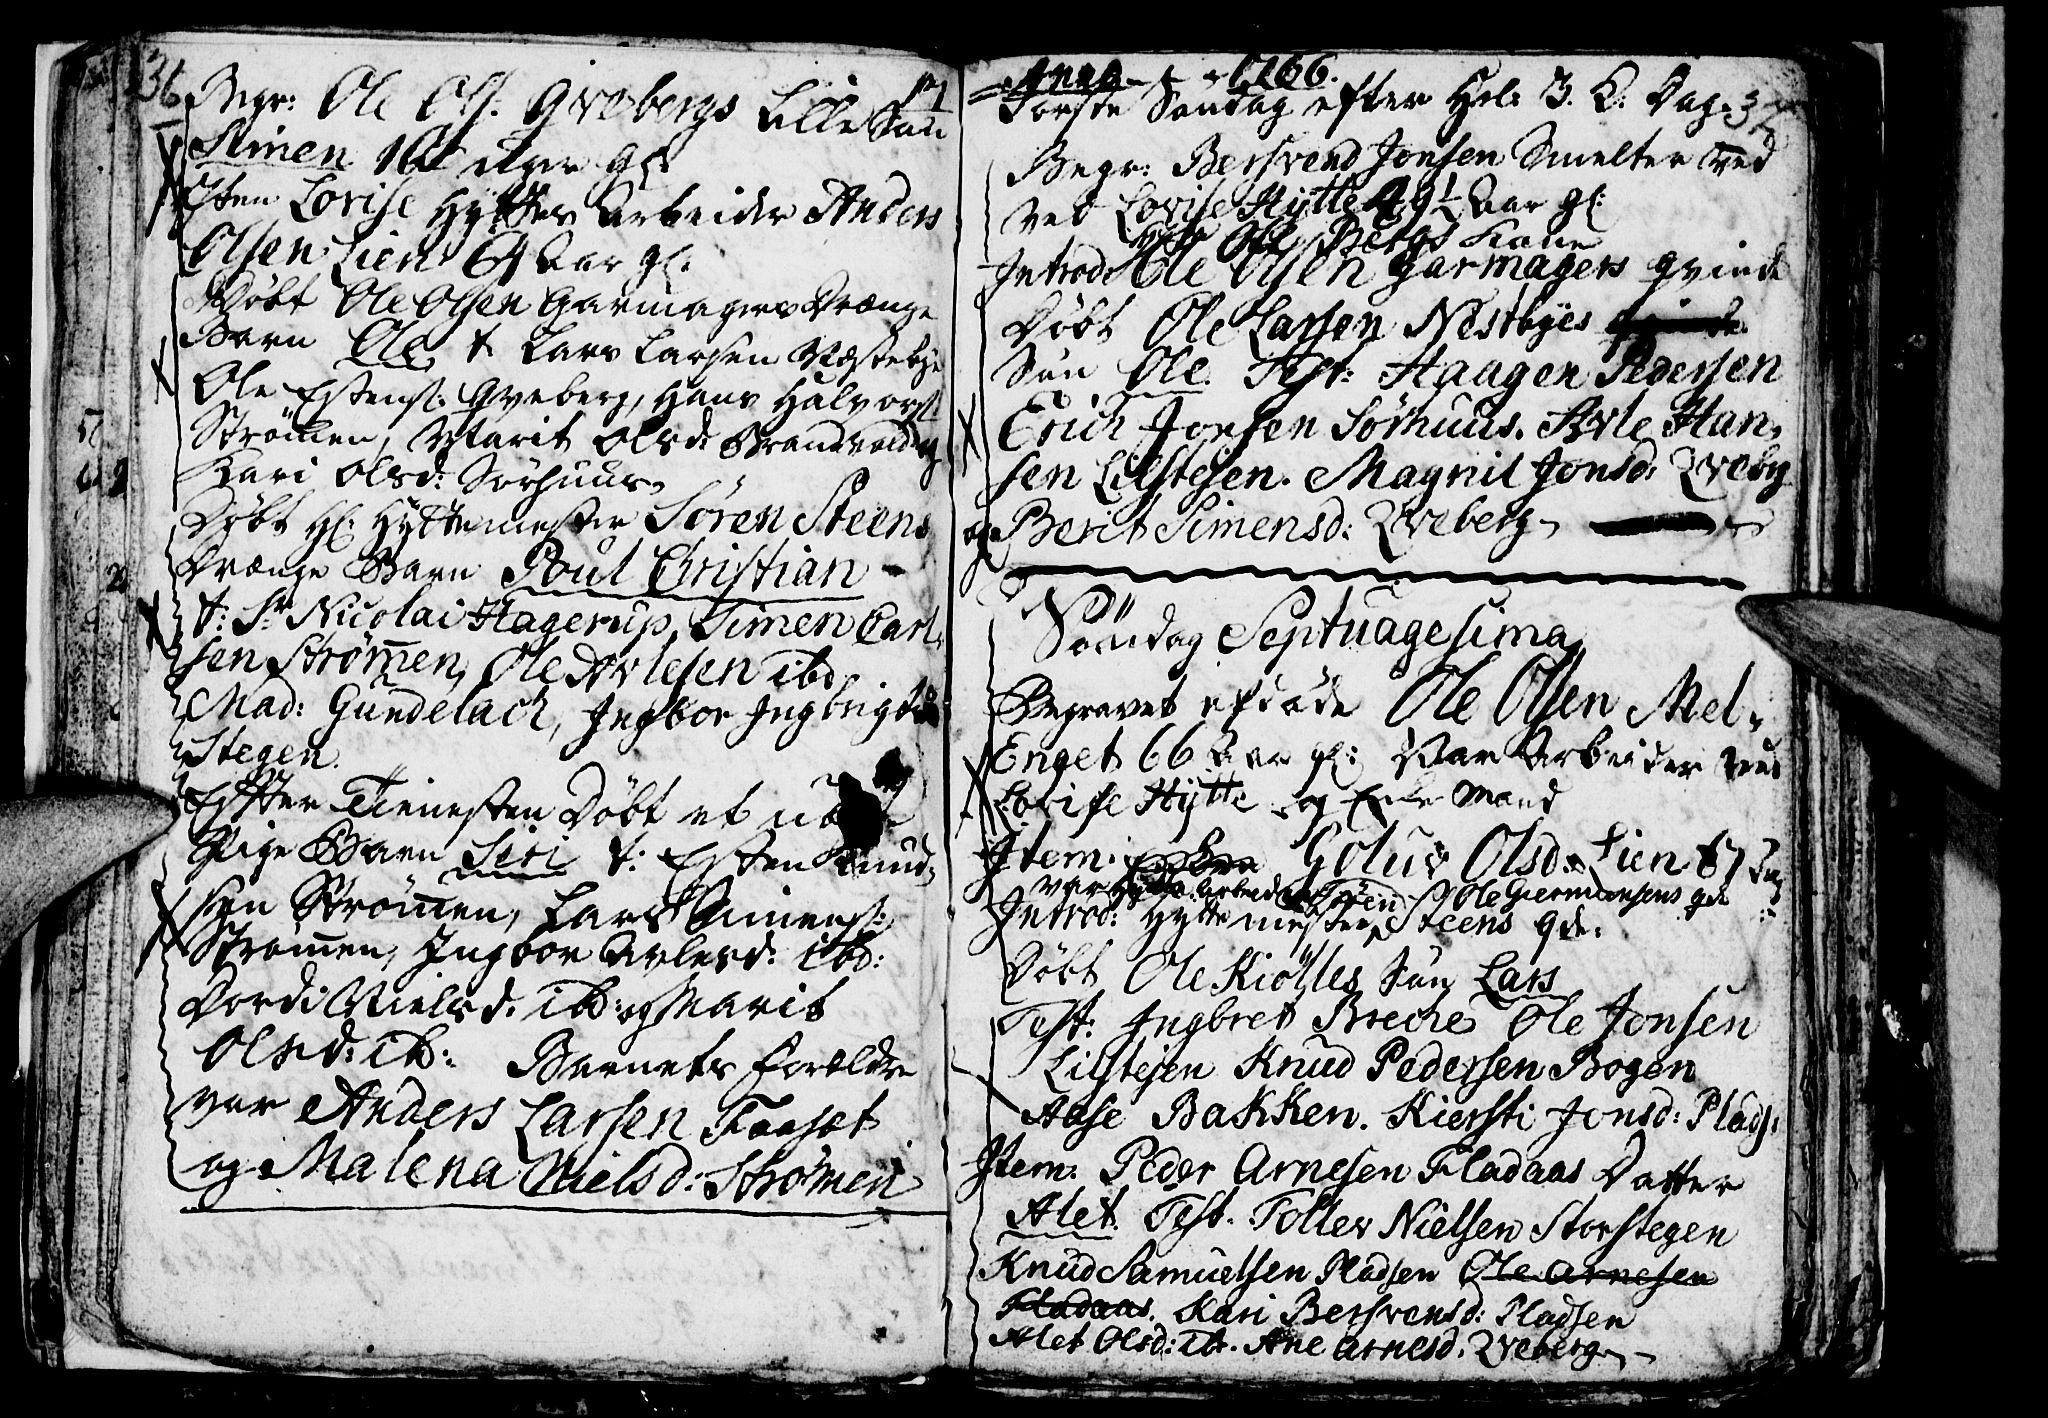 36
Begr: Ole Ols: Qvebergs Lille Søn
Simen 16 uger gl:
Item Lovise Hyttes Arbeider Anders
Olsen Lien 64 Aar gl:
Døbt Ole Olsen Garmagers Drænge
Barn Ole t. Lars Larsen Næstebye
Ole Estens: Qveberg, Hans Halvors:
Strømen, Marit Olsd: Brandvold og
Kari Olsd: Sørhuus
Døbt H: Hyttemester Søren Steens
Drænge Barn Poul Christian
t: Sr Nicolai Hagerup, Simen Carl-
sen Strømen, Ole Arlesen ibd
Mad: Gundelach, Ingbor Ingbrigtsd
Stegen.
Efter Tienesten Døbt et
Pige Barn Siri t: Esten Knud-
sen Strømen, Lars Simens:
Strømen, Ingbor Arlesd: ibd:
Dordi Nielsd. ibd: og Marit
Olsd: ib: Barnets Forældre
var Anders Larsen Faaset
og Malena Nielsd: Strømen
Anno 1766.
Første Søndag efter Hel: 3. K: Dag. 37
Begr: Bersvend Jonsen Smelter ved
ved Lovise Hytte 49½ Aar gl:
Ole Bergs Kone
Introd: Ole Olsen Garmagers qvinde
Døbt Ole Larsen Nestbyes
Søn Ole. Test: Haagen Pedersen
Erich Jonsen Sørhuus. Arle Han-
sen Lilstejen. Magnil Jonsd: Qveberg
og Berit Simensd: Qveberg
Søndag Septuagesima
Begravet afdøde Ole Olsen Mel-
Enget 66 Aar gl: Var Arbeider ved
Lovise Hytte og Mand
Item: Goluv Olsd: Lien 67
var Hytte Arbeider Ole Giermonsens qde
Introd: Hyttemester Søren Steens qde.
Døbt Ole Kiølles Søn Lars
Test: Ingbret Breche Ole Jonsen
Lilstejen Knud Pedersen Bogen
Aase Bakken. Kiersti Jonsd: Plads:
Item: Peder Arnesen Fladaas Datter
Alet. Test. Tollev Nielsen Storstegen
Knud Samuelsen Pladsen Ole Arnesen
Fladaas. Kari Bersvensd: Pladsen
Alet Olsd: ib. Ane Arnesd. Qveberg